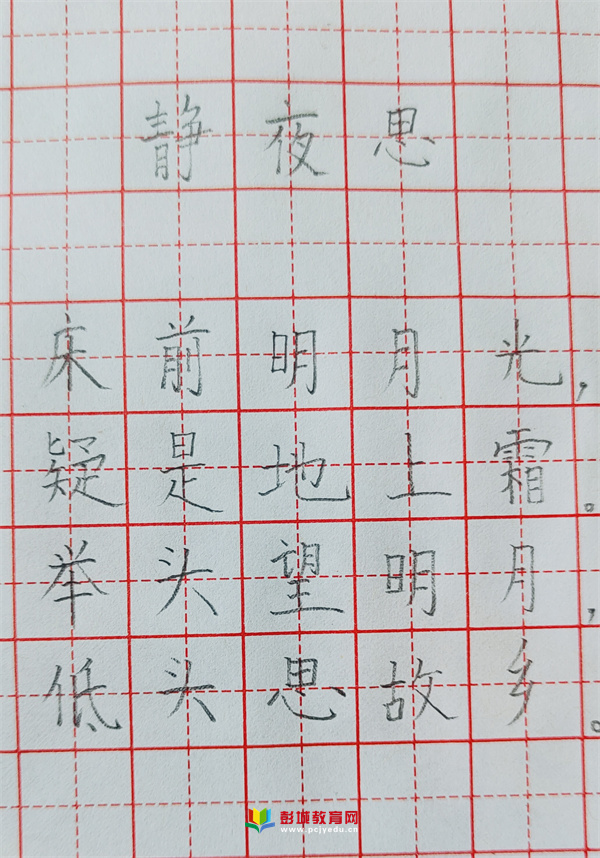 静夜思
床前明月光，
疑是地上霜。
举头望明月，
低头思故乡。
彭城教育网
www.pcjyedu.cn